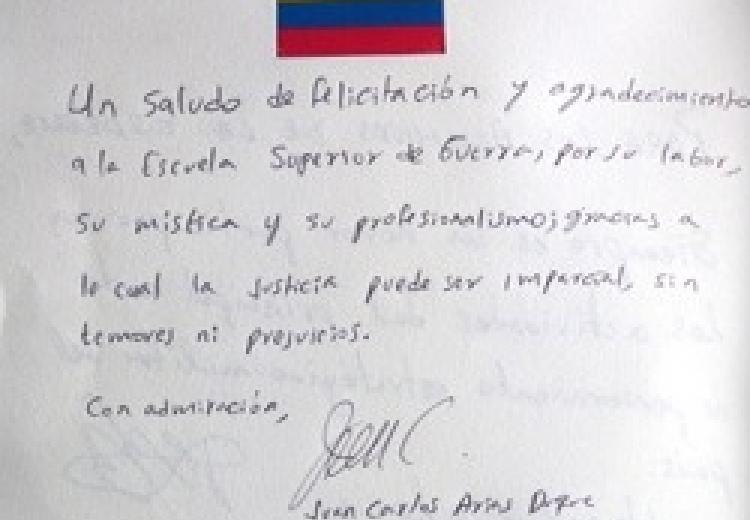 Un saludo de felicitación y agradecimiento
a la Escuela Superior de Guerra, por su labor,
su mistica y su profesionalismo; gracias a
lo cual la justicia puede ser imparcial, sin
temores ni prejuicios.
Con admiración,
Juan C
Juan Carlos Arias Duque